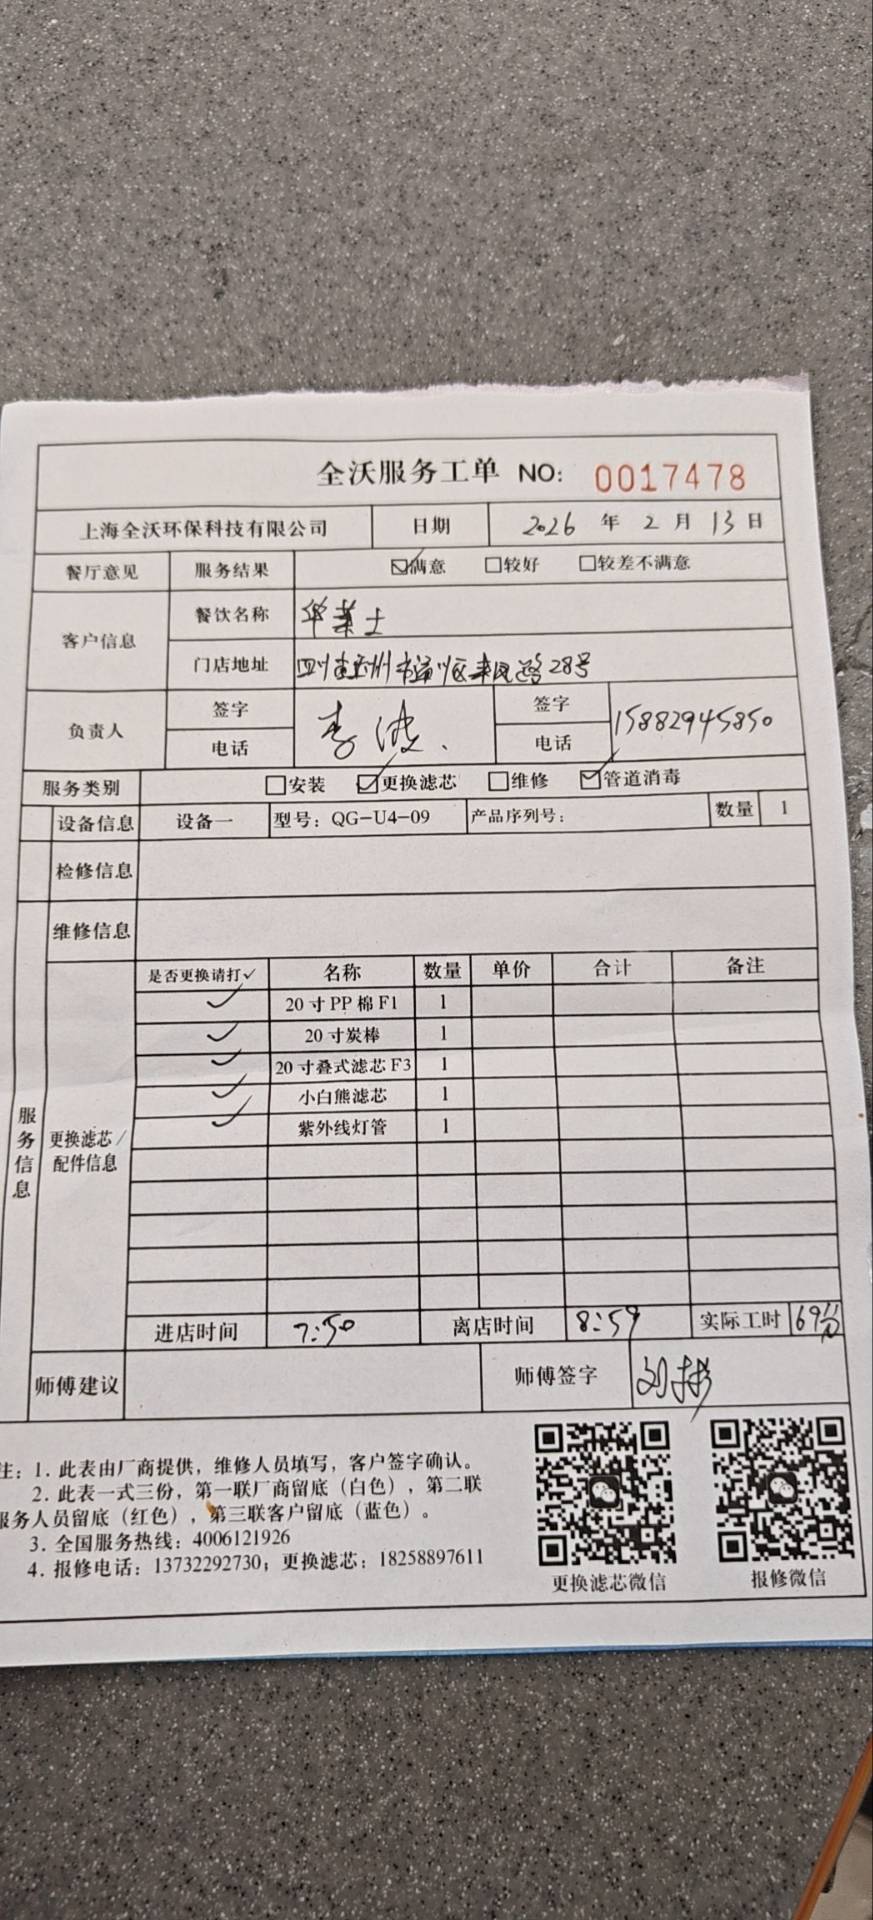 全沃服务工单 NO: 0017478
上海全沃环保科技有限公司 日期 2026 年 2 月 13 日
餐厅意见 服务结果 ☑满意 □较好 □较差不满意
客户信息 餐饮名称 华莱士
门店地址 四川 州市 川区 民路28号
负责人 签字 李波 签字
电话 电话 15882945850
服务类别 □安装 ☑更换滤芯 □维修 ☑管道消毒
设备信息 设备一 型号：QG-U4-09 产品序列号： 数量 1
检修信息
维修信息
是否更换请打✓ 名称 数量 单价 合计 备注
✓ 20寸PP棉F1 1
✓ 20寸炭棒 1
✓ 20寸叠式滤芯F3 1
✓ 小白熊滤芯 1
✓ 紫外线灯管 1
服务信息
更换滤芯/
配件信息
进店时间 7:50 离店时间 8:59 实际工时 69分
师傅建议 师傅签字 刘彬
注：1. 此表由厂商提供，维修人员填写，客户签字确认。
2. 此表一式三份，第一联厂商留底（白色），第二联
服务人员留底（红色），第三联客户留底（蓝色）。
3. 全国服务热线：4006121926
4. 报修电话：13732292730；更换滤芯：18258897611
更换滤芯微信 报修微信